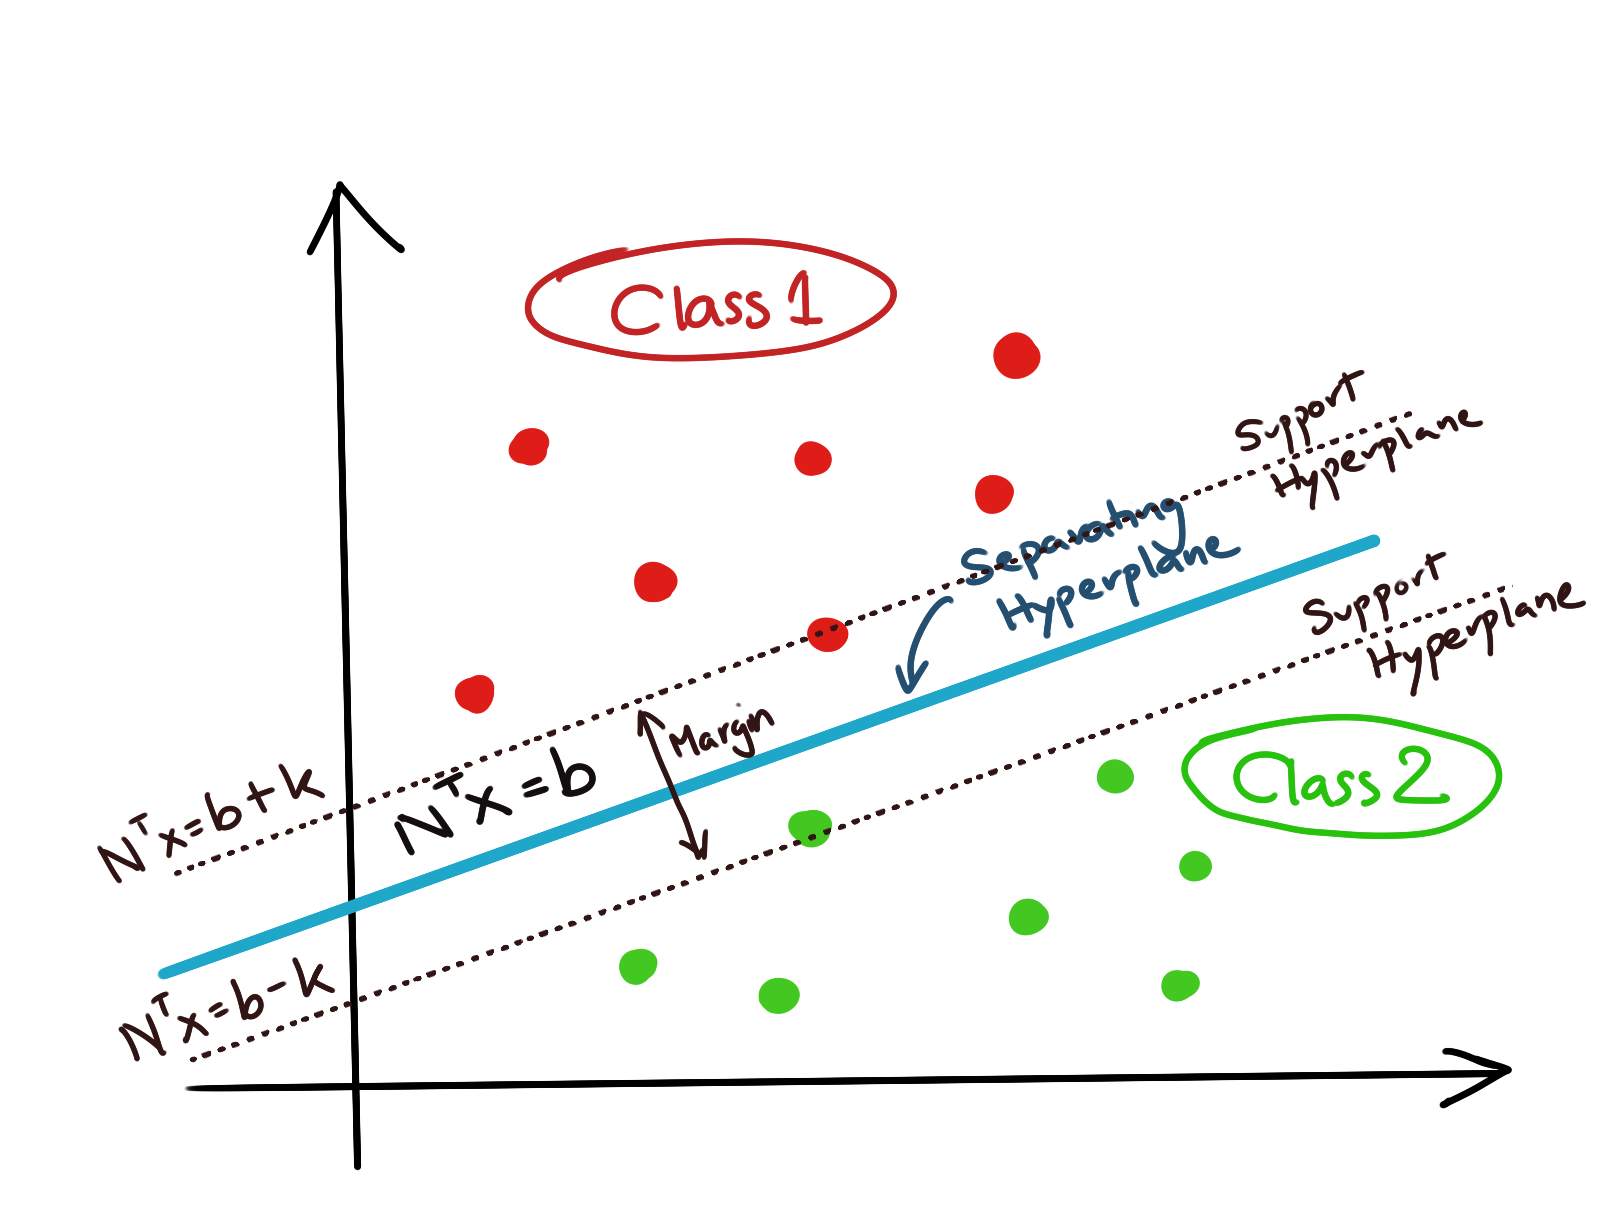 Class 1
Support
Hyperplane
Separating
Hyperplane
Support
Hyperplane
Margin
Nᵀx=b+k
Nᵀx=b
Class 2
Nᵀx=b-k